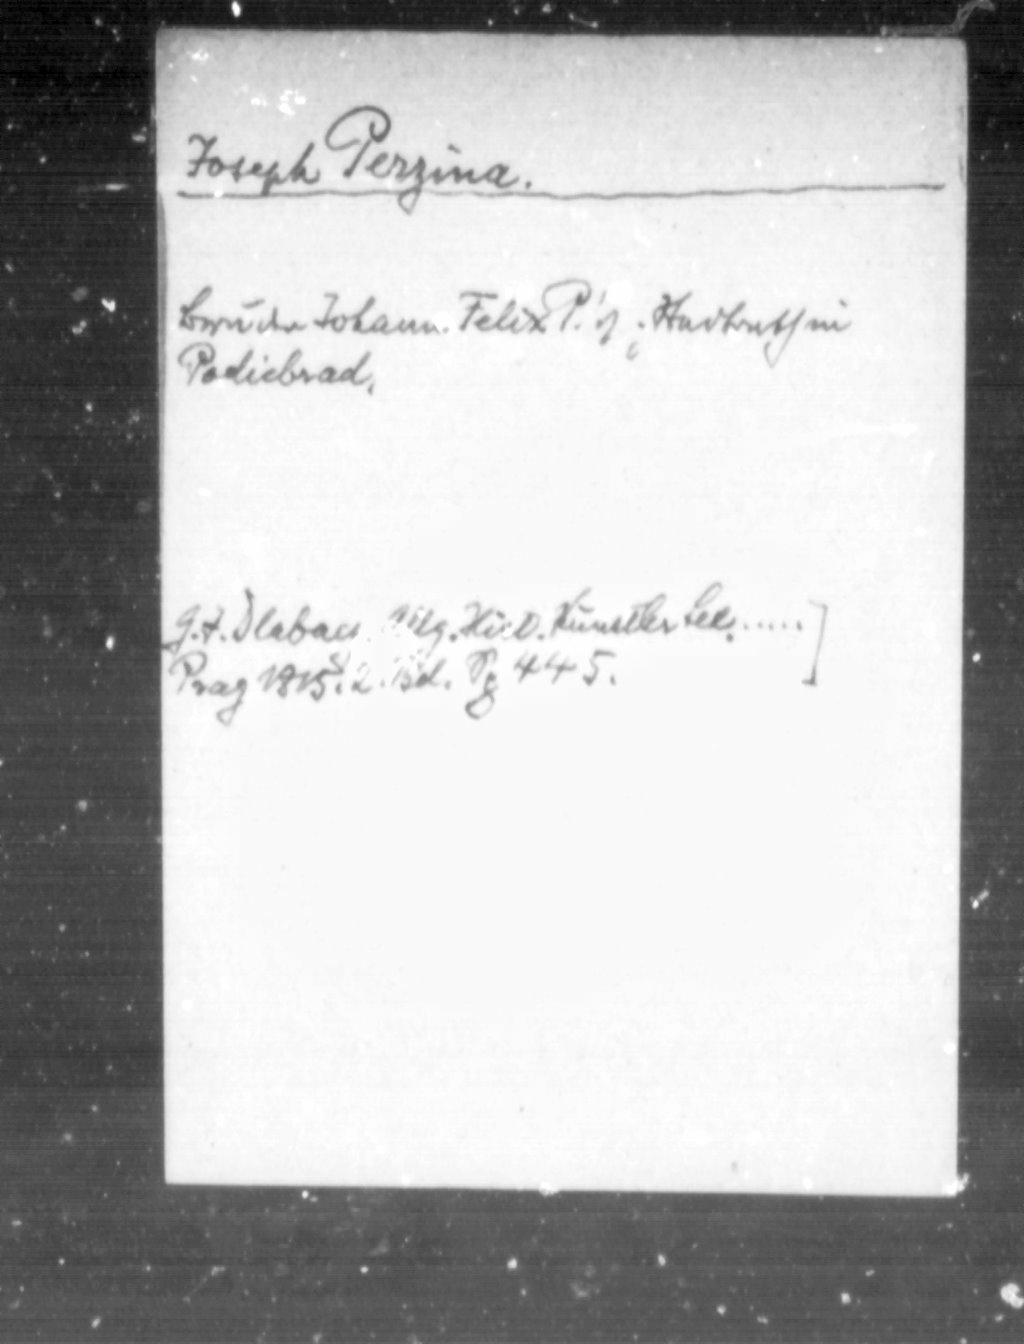 Joseph Perzina.
Bruder Johann Felix P.'s; Stadtrath in
Podiebrad.
G. J. Dlabacz, Allg. Hist. Künstler Lex. .....]
Prag 1815. 2. Bd. Pg 445.